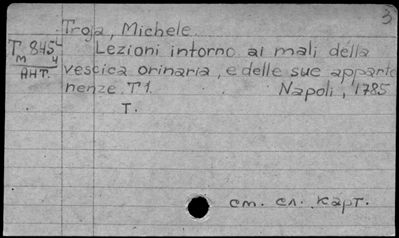 3
Troja, Michele.
T 845 Lezioni intorno ai mali della
м ч
АНТ. vescica orinaria, e delle sue apparte
nenze. T1. Napoli, 1785
T.
см. сл. карт.